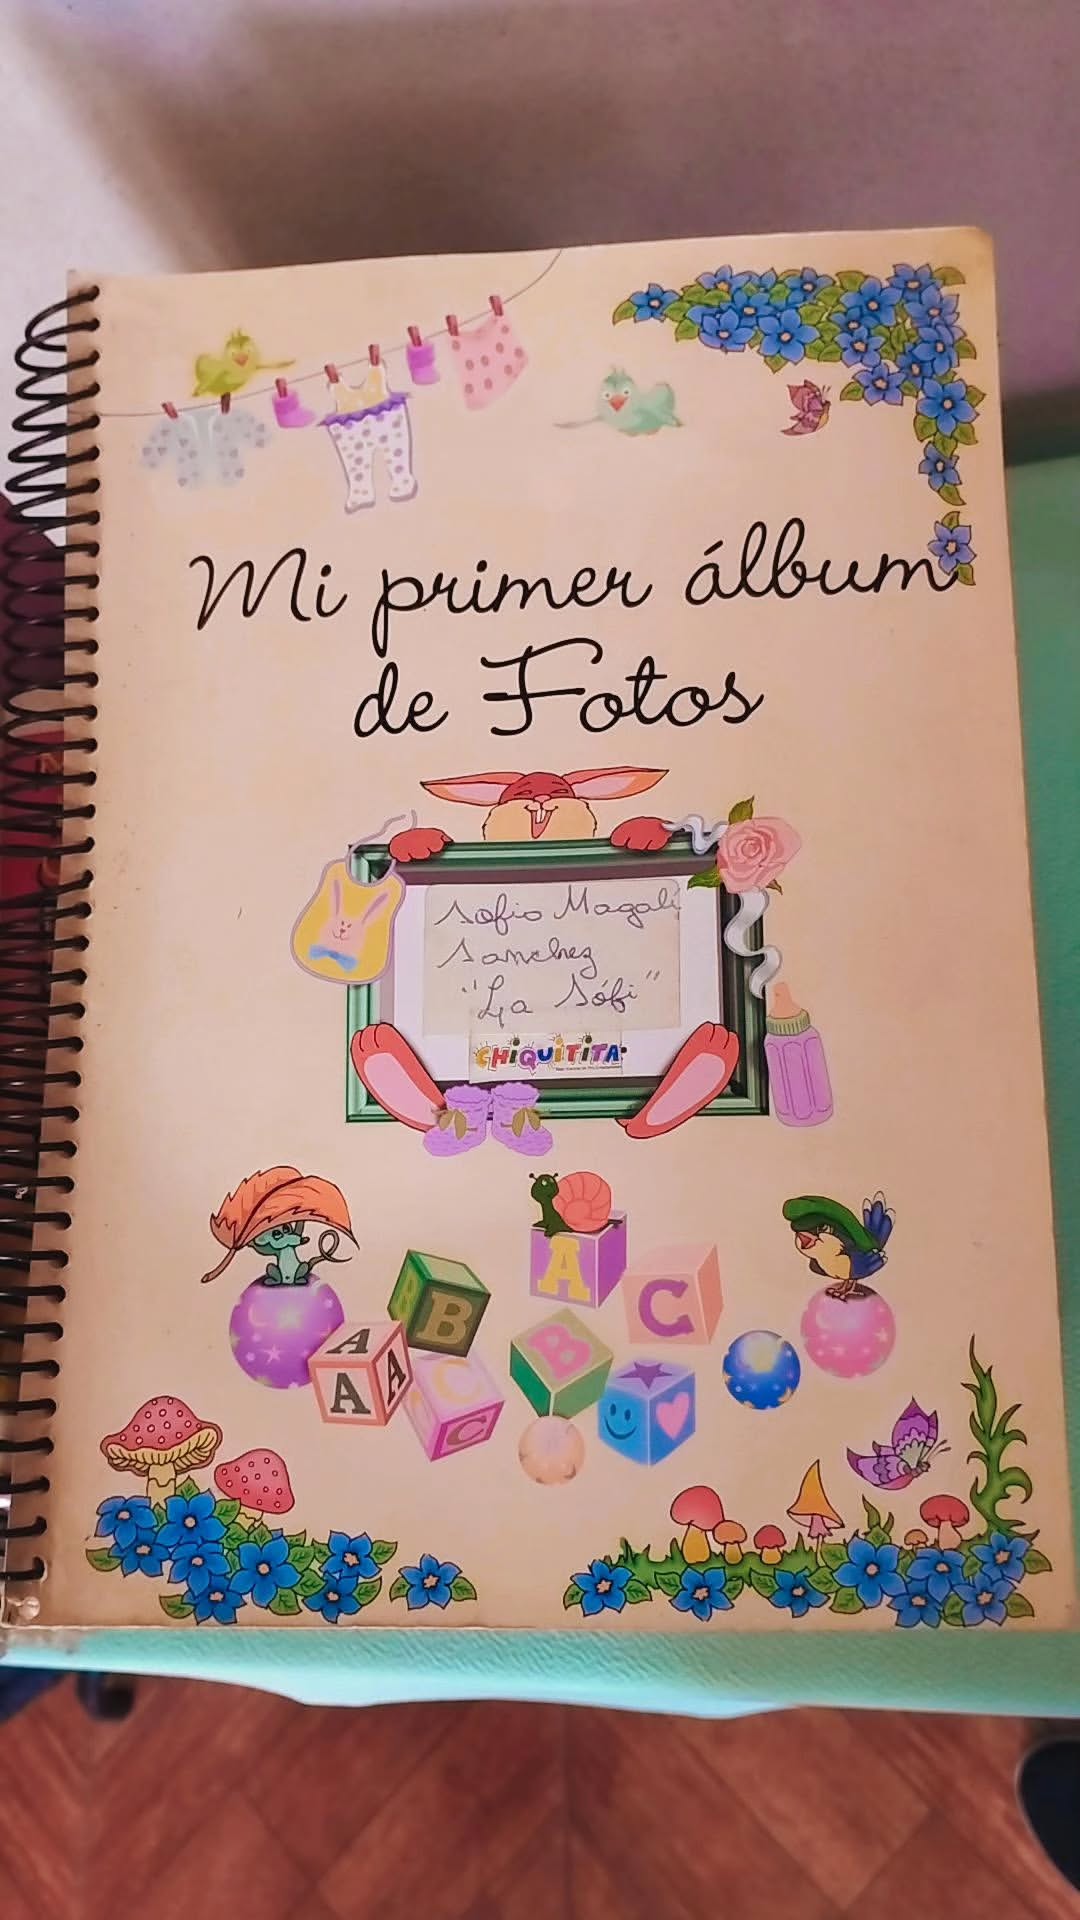 Mi primer álbum
de Fotos
Sofia Magalí
Sanchez
"La Sófi"
CHIQUITITA
A
B
A
C
A
A
B
C
C